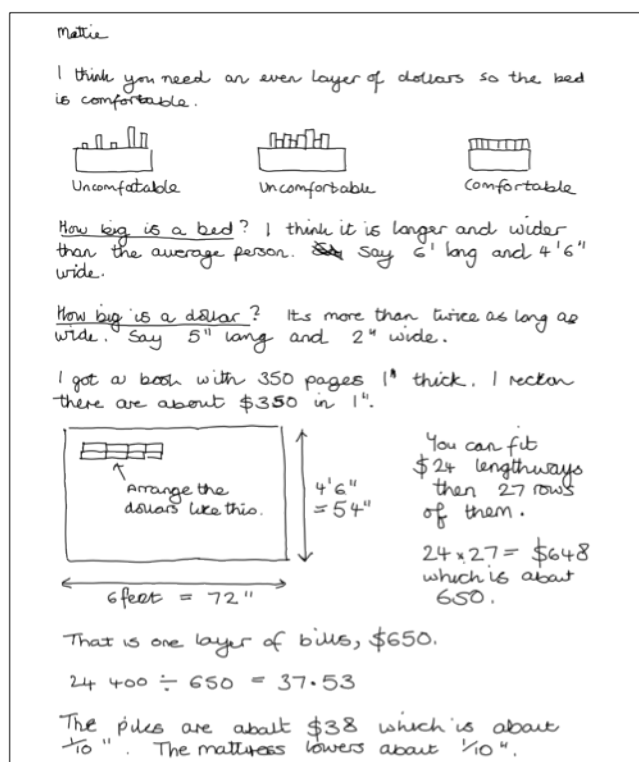 Mattie
I think you need an even layer of dollars so the bed
is comfortable.
Uncomfatable Uncomfortbable Comfortable
How big is a bed? I think it is longer and wider
than the average person. Say 6' long and 4'6"
wide.
How big is a dollar? Its more than twice as long as
wide. Say 5" long and 2" wide.
I got a book with 350 pages 1" thick. I reckon
there are about $350 in 1".
Arrange the
dollars like this.
4'6"
= 54"
6 feet = 72"
You can fit
$24 lengthways
then 27 rows
of them.
24 × 27 = $648
which is about
650.
That is one layer of bills, $650.
24 400 ÷ 650 = 37.53
The piles are about $38 which is about
1/10". The mattress lowers about 1/10".